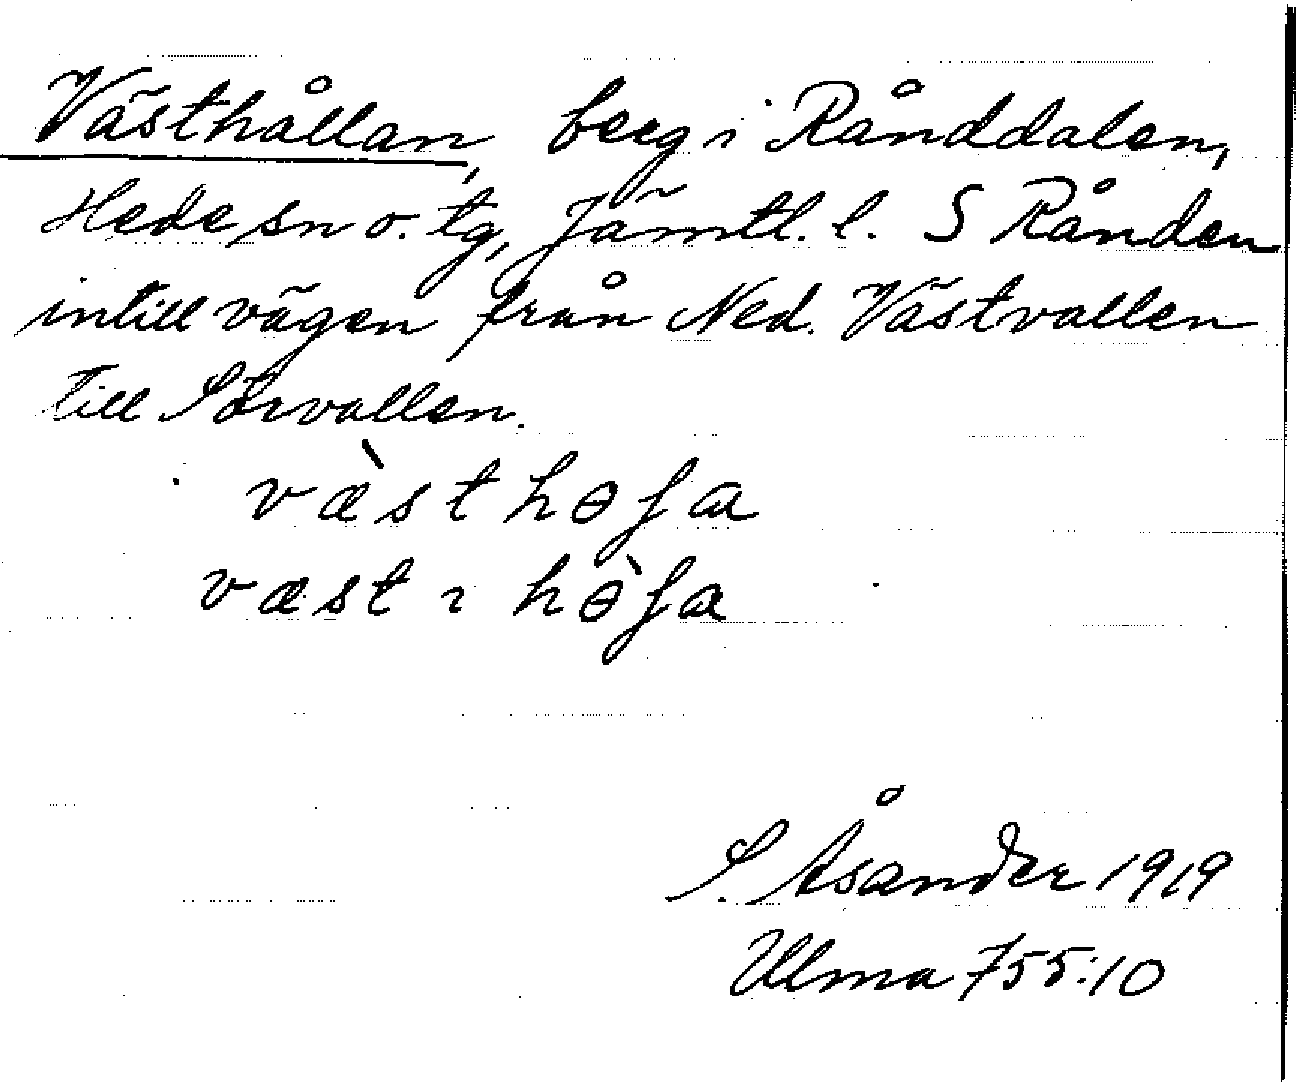 Västhållan, berg i Rånddalen,
Hede sn o. tg, Jämtl. l. S Rånden
intill vägen från Ned. Västvallen
till Sörvallen.
væ̀sthɵʃa
væst ı hɵ̀ʃa
S. Åsander 1919
Ulma 755:10